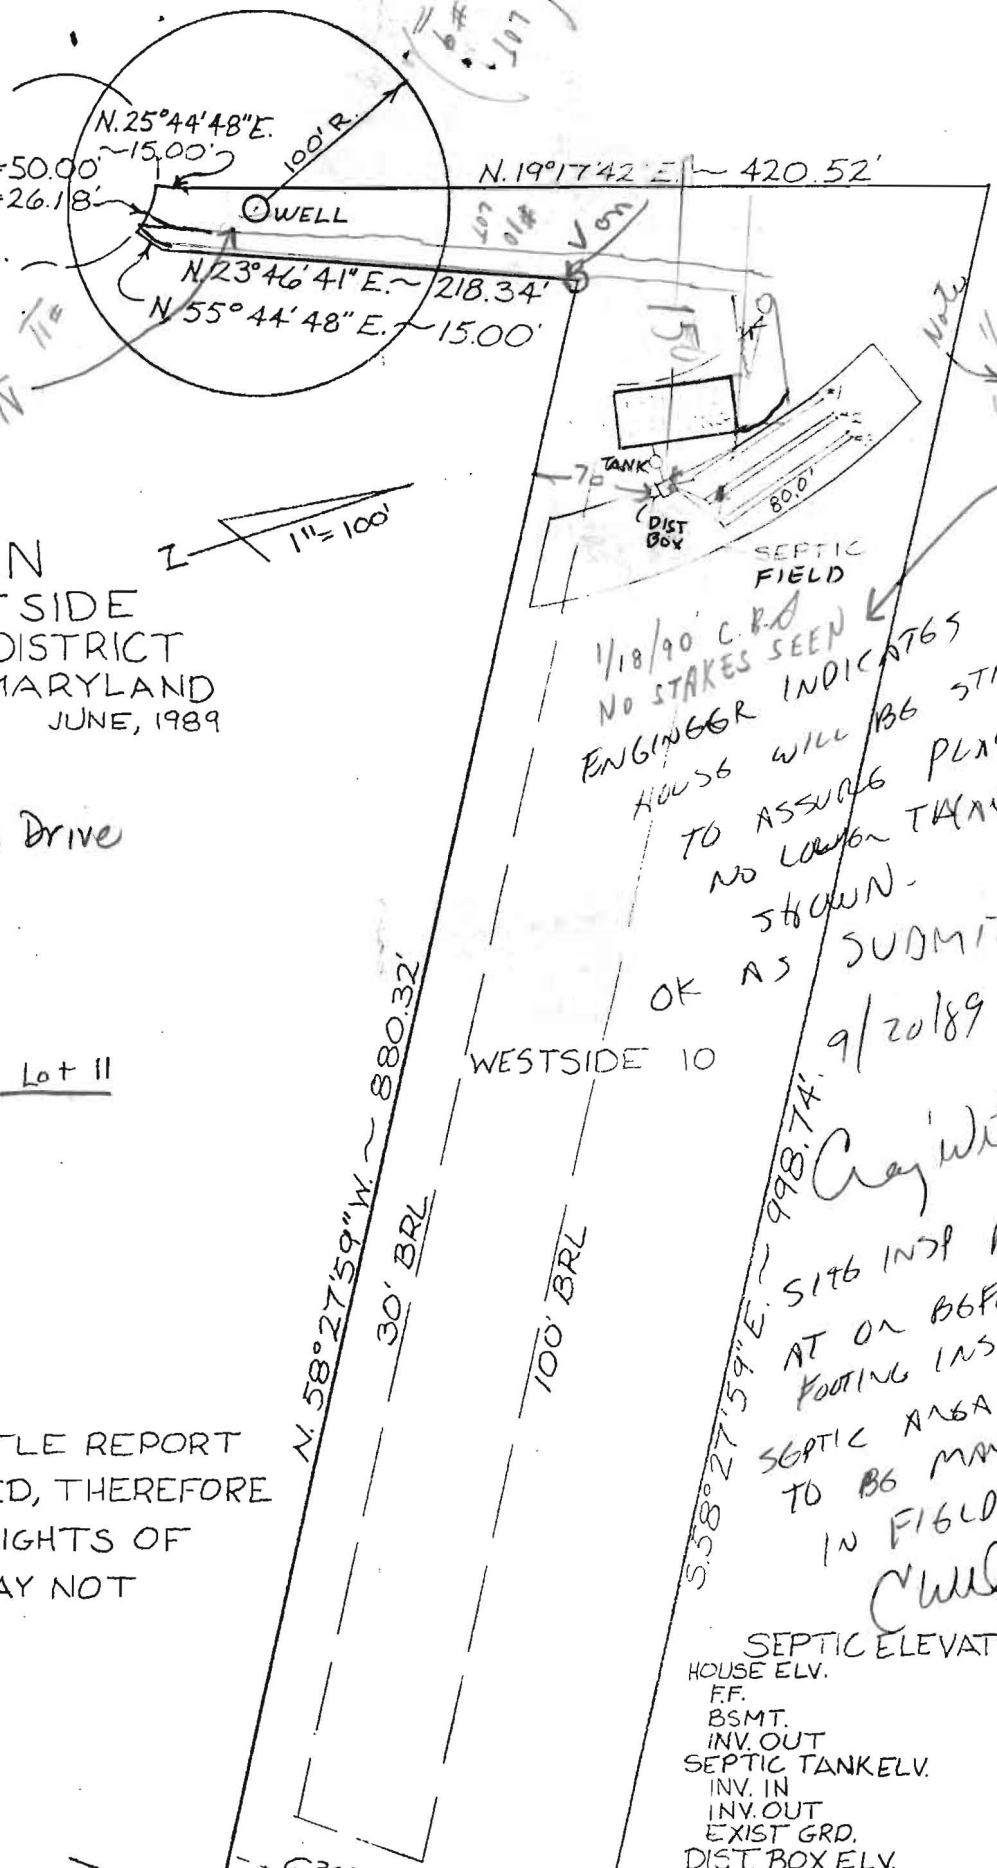 LOT
#9
N.25°44'48"E.
~15.00'
=50.00'
=26.18'
100' R.
N.19°17'42"E. ~ 420.52'
WELL
LOT
#10
N.23°46'41"E.~ 218.34'
N.55°44'48"E.~15.00'
#11
150
Note
TANK
70
DIST
BOX
80.0'
SEPTIC
FIELD
1"=100'
N
TSIDE
DISTRICT
MARYLAND
JUNE, 1989
1/18/90 C.B.
NO STAKES SEEN
ENGINEER INDICATES
HOUSE WILL BE
TO ASSURE
NO LOWER THAN
SHOWN.
OK AS
9/20/89
Drive
Lot 11
WESTSIDE 10
N.58°27'59"W. ~ 880.32'
30' BRL
100' BRL
S.58°27'59"E. ~ 998.74'
SITE INSP
AT OR
FOOTING
SEPTIC AREA
TO BE
IN FIELD
TLE REPORT
ED, THEREFORE
IGHTS OF
AY NOT
SEPTIC ELEVAT
HOUSE ELV.
F.F.
BSMT.
INV. OUT
SEPTIC TANK ELV.
INV. IN
INV. OUT
EXIST GRD.
DIST. BOX ELV.